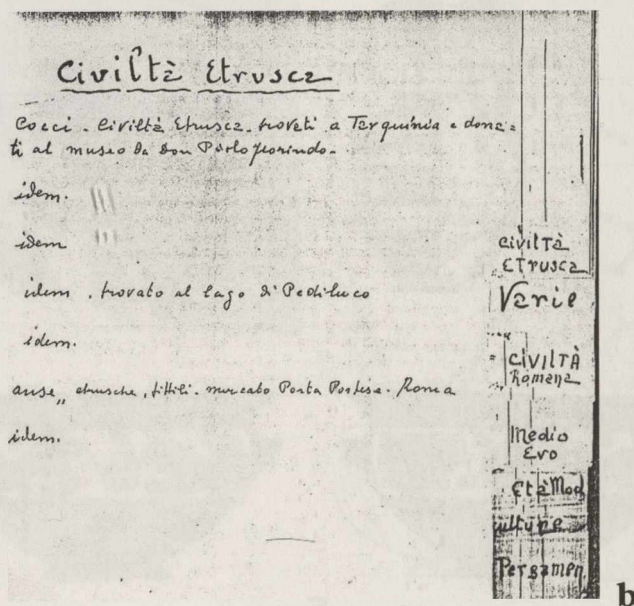 Civiltà Etrusca
Cocci. Civiltà Etrusca. trovati a Tarquinia e dona=
ti al museo da Don Paolo Fiorindo.
idem.
idem
idem. trovato al lago di Pediluco
idem.
anse,, etrusche, fittili. mercato Porta Portese. Roma
idem.
civiltà
Etrusca
Varie
CIVILTÀ
Romana
Medio
Evo
Età Mod
culture
Pergamen
b